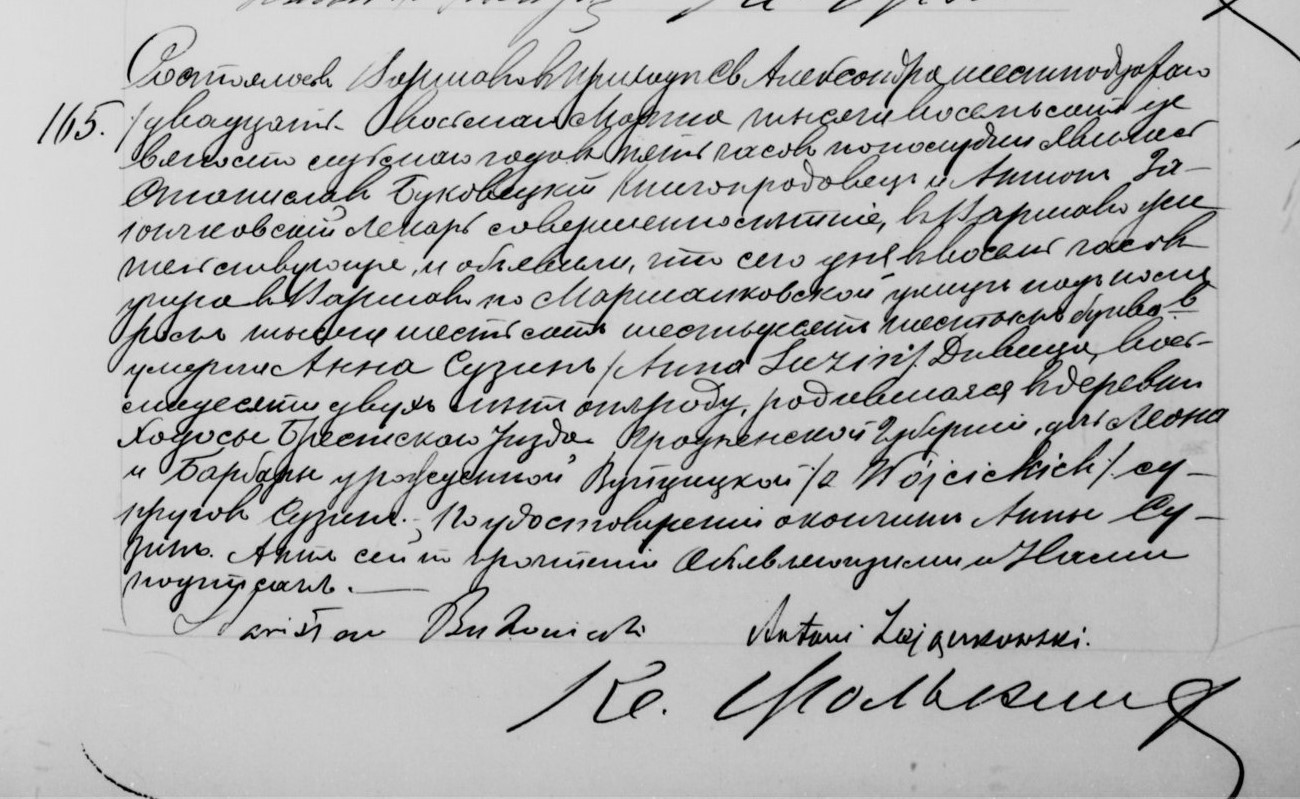 165.
Состоялось Варшава в приходе Св Александра шестнадцатаго
/двадцать восьмаго Марта тысяча восемьсотъ
девяносто седьмаго года в пять часовъ пополудни Явились
Станиславъ Буковецкій Книгопродовецъ и Антонъ За-
іончковскій Лекарь совершеннолѣтніе, въ Варшавѣ жи
тельствующіе, и объявили, что сего дня въ восемь часовъ
утра въ Варшавѣ по Маршалковской улицѣ подъ номе
ромъ тысяча шестьсотъ шестьдесятъ шестомъ буква в
умерла Анна Сузинъ /Anna Suzin/. Дѣвица, вось-
мидесяти двухъ лѣтъ отъ роду, родившаяся въ деревни
Ходосы Брестскаго Уѣзда Гродненской Губерніи, дочь Леона
и Барбары урожденной Вуйцицкой /z Wójcickich/. су-
пруговъ Сузинъ. По удостовѣреніи о кончинѣ Анны Су-
зинъ. Актъ сей по прочтеніи Объявляющими и Нами
подписанъ.
Stanisław Bukowiecki Antoni Zajączkowski.
Кс.